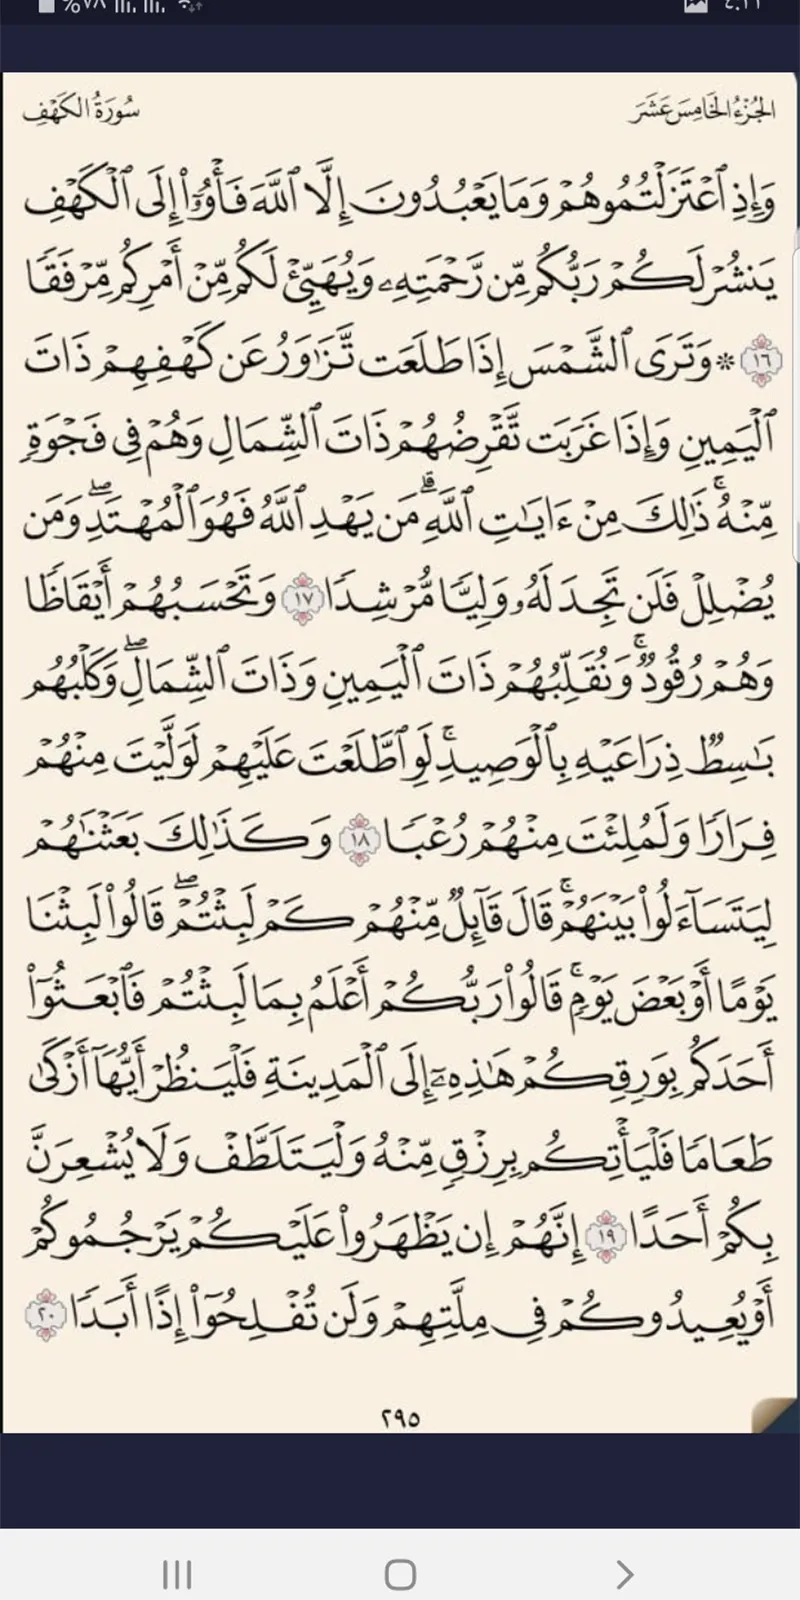 ٧٨%
٤:١١
الجُزْءُ الخَامِسَ عَشَرَ
سُورَةُ الكَهْفِ
وَإِذِ ٱعْتَزَلْتُمُوهُمْ وَمَا يَعْبُدُونَ إِلَّا ٱللَّهَ فَأْوُۥٓا۟ إِلَى ٱلْكَهْفِ
يَنشُرْ لَكُمْ رَبُّكُم مِّن رَّحْمَتِهِۦ وَيُهَيِّئْ لَكُم مِّنْ أَمْرِكُم مِّرْفَقًا
١٦ * وَتَرَى ٱلشَّمْسَ إِذَا طَلَعَت تَّزَٰوَرُ عَن كَهْفِهِمْ ذَاتَ
ٱلْيَمِينِ وَإِذَا غَرَبَت تَّقْرِضُهُمْ ذَاتَ ٱلشِّمَالِ وَهُمْ فِى فَجْوَةٍ
مِّنْهُ ۚ ذَٰلِكَ مِنْ ءَايَٰتِ ٱللَّهِ ۗ مَن يَهْدِ ٱللَّهُ فَهُوَ ٱلْمُهْتَدِ ۖ وَمَن
يُضْلِلْ فَلَن تَجِدَ لَهُۥ وَلِيًّا مُّرْشِدًا ١٧ وَتَحْسَبُهُمْ أَيْقَاظًا
وَهُمْ رُقُودٌ ۚ وَنُقَلِّبُهُمْ ذَاتَ ٱلْيَمِينِ وَذَاتَ ٱلشِّمَالِ ۖ وَكَلْبُهُم
بَٰسِطٌ ذِرَاعَيْهِ بِٱلْوَصِيدِ ۚ لَوِ ٱطَّلَعْتَ عَلَيْهِمْ لَوَلَّيْتَ مِنْهُمْ
فِرَارًا وَلَمُلِئْتَ مِنْهُمْ رُعْبًا ١٨ وَكَذَٰلِكَ بَعَثْنَٰهُمْ
لِيَتَسَآءَلُوا۟ بَيْنَهُمْ ۚ قَالَ قَآئِلٌ مِّنْهُمْ كَمْ لَبِثْتُمْ ۖ قَالُوا۟ لَبِثْنَا
يَوْمًا أَوْ بَعْضَ يَوْمٍ ۚ قَالُوا۟ رَبُّكُمْ أَعْلَمُ بِمَا لَبِثْتُمْ فَٱبْعَثُوٓا۟
أَحَدَكُم بِوَرِقِكُمْ هَٰذِهِۦٓ إِلَى ٱلْمَدِينَةِ فَلْيَنظُرْ أَيُّهَآ أَزْكَىٰ
طَعَامًا فَلْيَأْتِكُم بِرِزْقٍ مِّنْهُ وَلْيَتَلَطَّفْ وَلَا يُشْعِرَنَّ
بِكُمْ أَحَدًا ١٩ إِنَّهُمْ إِن يَظْهَرُوا۟ عَلَيْكُمْ يَرْجُمُوكُمْ
أَوْ يُعِيدُوكُمْ فِى مِلَّتِهِمْ وَلَن تُفْلِحُوٓا۟ إِذًا أَبَدًا ٢٠
٢٩٥